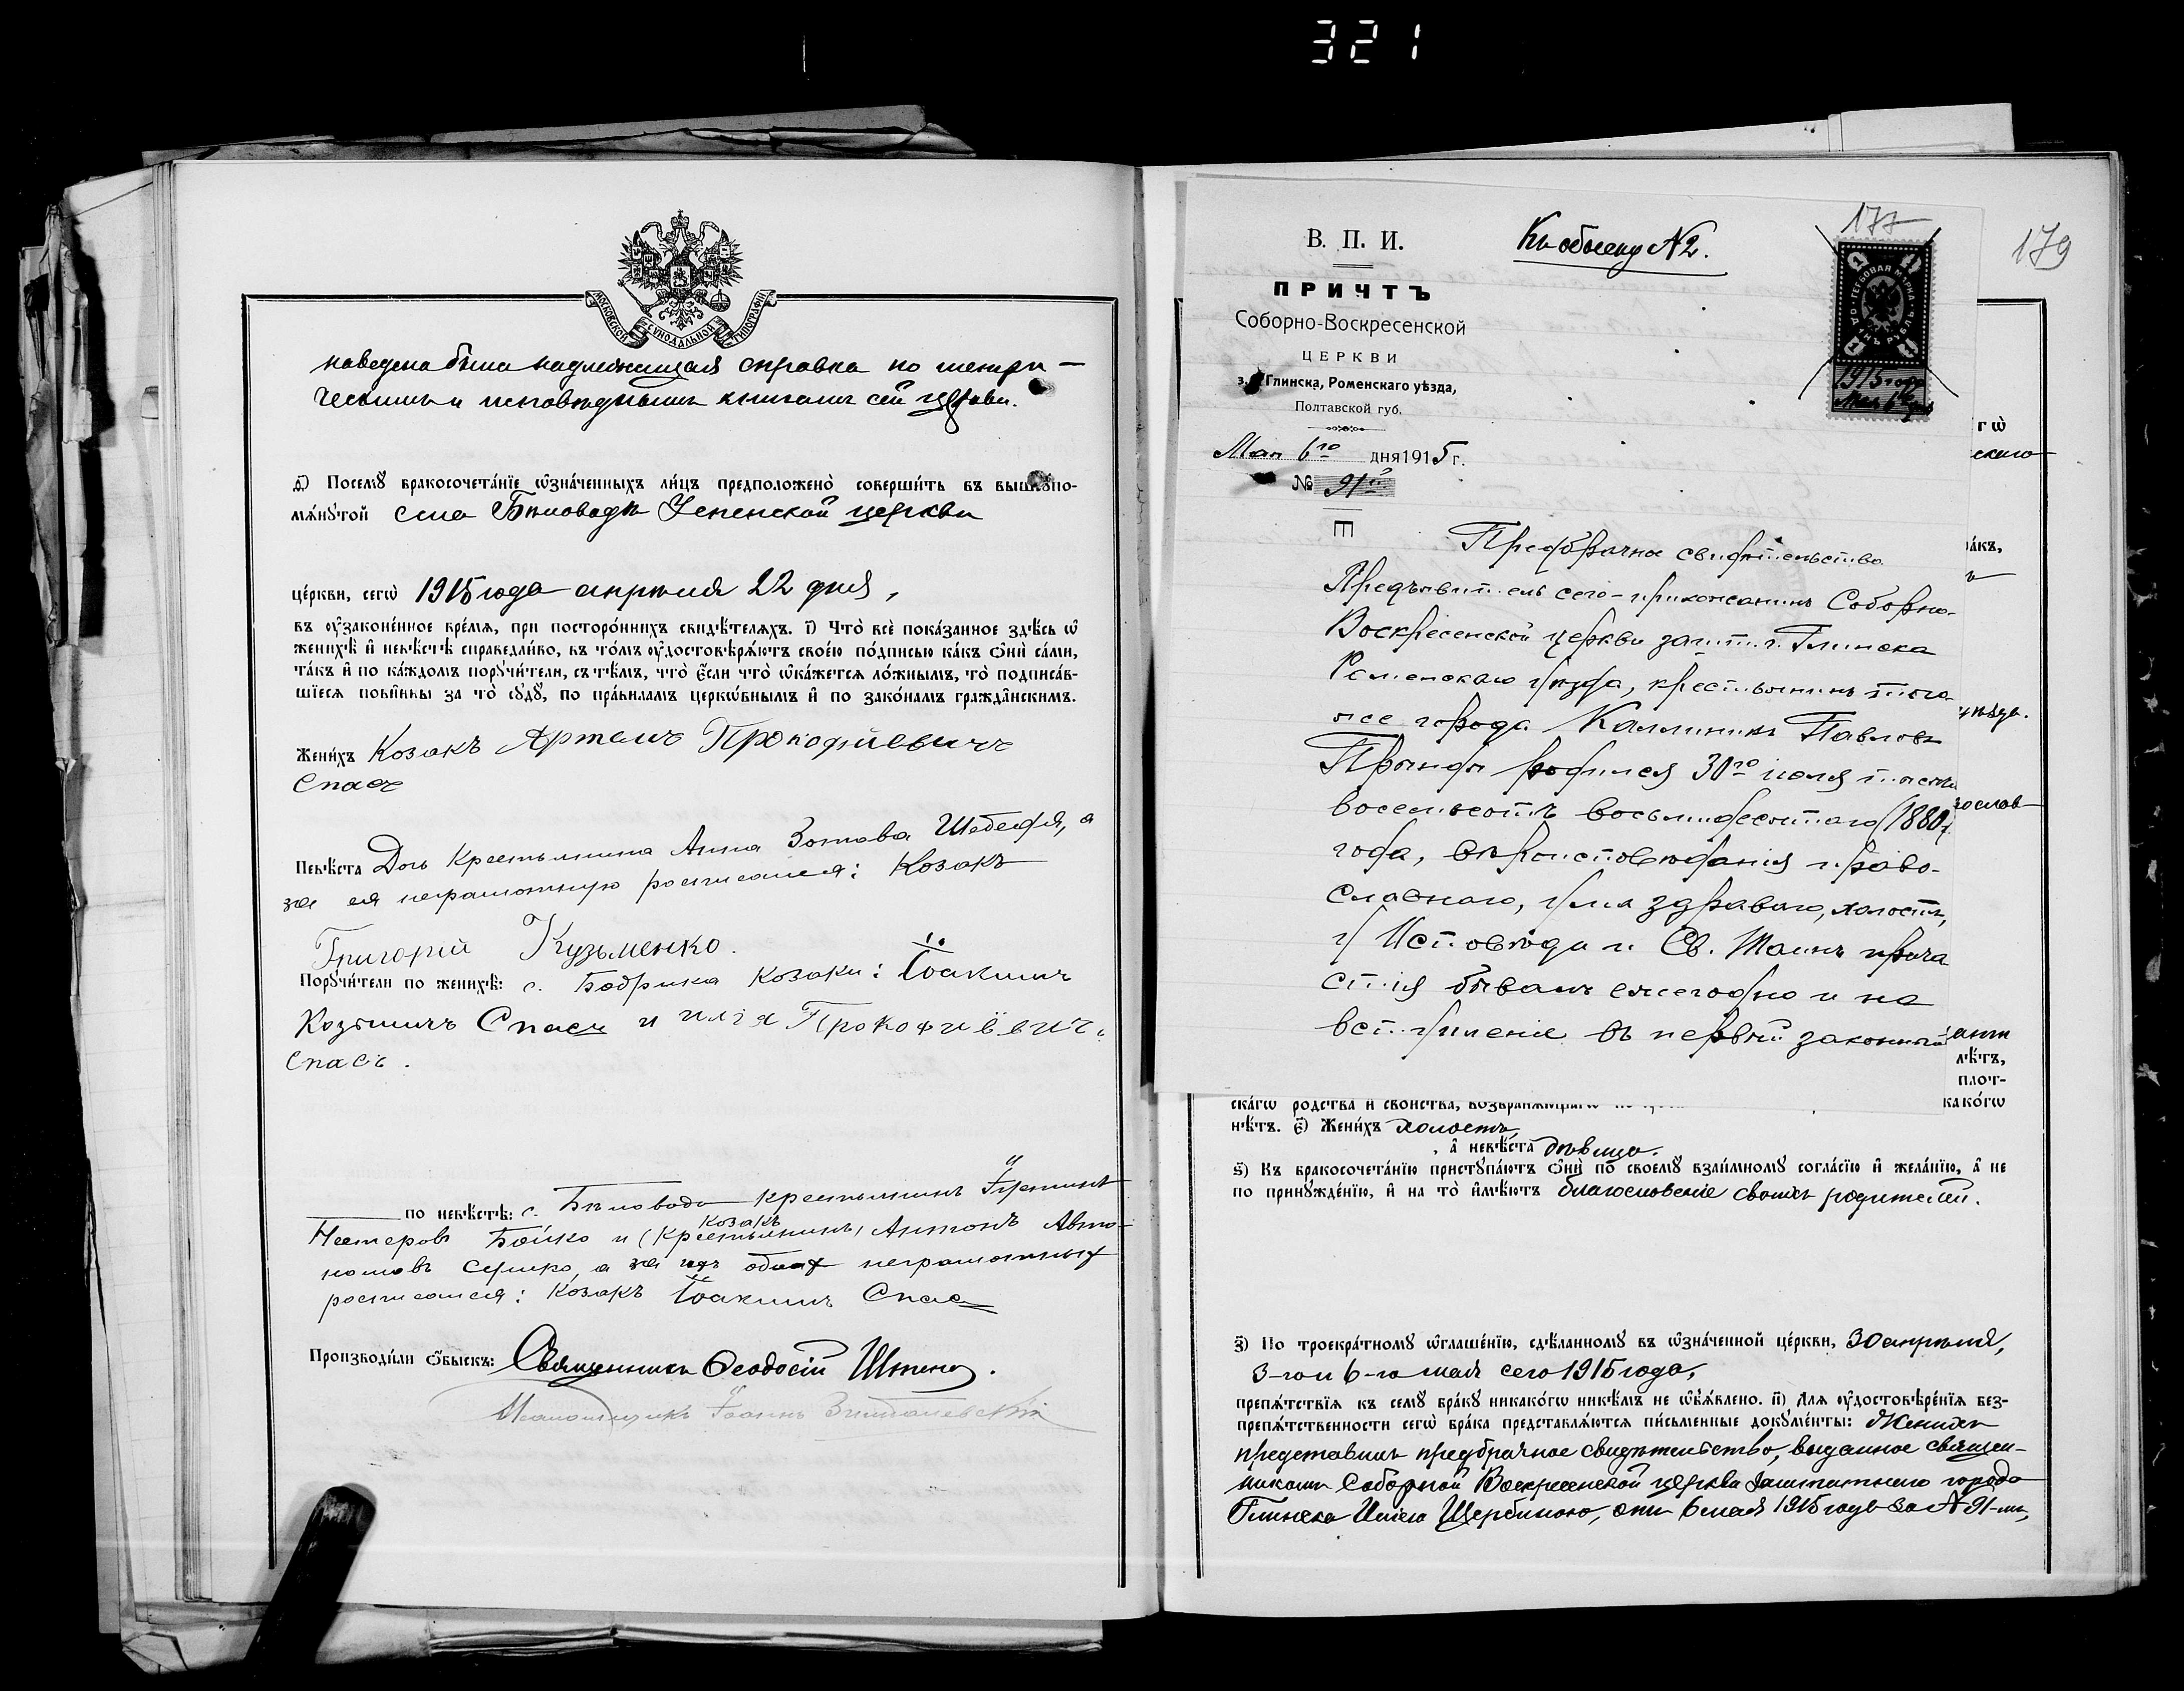 321
МОСКОВСКОЙ СѴНОДАЛЬНОЙ ТИПОГРАФІИ
наведена была надлежащая справка по метри-
ческимъ и исповѣднымъ книгамъ сей церкви.
д҃) Посемꙋ̀ бракосочета́нїе ѡ҆зна́ченныхъ ли́цъ предположено̀ соверши́ть въ вышеꙋпо-
мѧ́нꙋтой села Бѣловодъ Успенской церкви
це́ркви, сегѡ̀ 1915 года апрѣля 22 дня,
въ ᲂу҆законе́нное вре́мѧ, при посторо́ннихъ свидѣ́телѧхъ. і҃) Что̀ всѐ пока́занное здѣ́сь ѡ҆
женихѣ̀ и҆ невѣ́стѣ справедли́во, въ то́мъ ᲂу҆достовѣрѧ́ютъ свое́ю по́дписью ка́къ ѻ҆нѝ са́ми,
та́къ и҆ по ка́ждомъ порꙋчи́тели, съ тѣ́мъ, что̀ є҆́сли что̀ ѡ҆ка́жется ло́жнымъ, то̀ подписа́в-
шїеся пови́нны за то̀ сꙋдꙋ̀, по пра́виламъ церкѡ́внымъ и҆ по зако́намъ гражда́нскимъ.
Жени́хъ Козакъ Артемъ Прокофіевичъ
Спасъ
Невѣ́ста Дочь Крестьянина Анна Зотова Шебедя, а
за ея неграмотную росписался: Козакъ
Григорій Кузьменко.
Порꙋчи́тели по женихѣ̀: с. Бобрика козаки: Іоакимъ
Козьмичъ Спасъ и илія Прокофиёвичъ
спасъ.
по невѣ́стѣ: с. Бѣловодъ крестьянинъ Іустинъ
Козакъ
Нестеровъ Бойко и (Крестьянинъ) Антонъ Авто-
номовъ Сушко, а за нихъ обоихъ неграмотныхъ
росписался: Козакъ Іоакимъ Спасъ
Производи́ли ѻ҆́быскъ: Священникъ Ѳеодосій
Псаломщикъ Іоаннъ
В. П. И.
Къ обыску № 2.
177
179
ПРИЧТЪ
Соборно-Воскресенской
ЦЕРКВИ
з. г. Глинска, Роменскаго уѣзда,
Полтавской губ.
Мая 6го дня 1915 г.
№ 91й
ГЕРБОВАЯ МАРКА
ОДИНЪ РУБЛЬ
1
1915 года
Мая 6 дня
Предбрачное свидѣтельство.
Предъявитель сего - прихожанинъ Соборно-
Воскресенской церкви зашт. г. Глинска
Роменскаго уѣзда, крестьянинъ того-
же города Каллиникъ Павловъ
родился 30го іюля тысяча
восемьсотъ восьмидесятаго (1880)
года, вѣроисповѣданія право-
славнаго, ума здраваго, холостъ,
у Исповѣди и Св. Таинъ прича
стія бывалъ ежегодно и на
вступленіе въ первый законный
гѡ
скаго
ра́къ,
уѣзда.
вослав
лѣ́тъ,
плот-
како́гѡ
ска́гѡ родства̀ и҆ сво́йства,
нѣ́тъ. є҃) Жени́хъ холостъ,
а҆ невѣ́ста дѣвица.
ѕ҃) Къ бракосочета́нїю пристꙋпа́ютъ ѻ҆нѝ по своемꙋ̀ взаи́мномꙋ согла́сїю и҆ жела́нїю, а҆ не
по принꙋжде́нїю, и҆ на то̀ и҆мѣ́ютъ благословеніе своихъ родителей.
з҃) По троекра́тномꙋ ѡ҆глаше́нїю, сдѣ́ланномꙋ въ ѡ҆зна́ченной це́ркви, 30 апрѣля,
3-го и 6-го мая сего 1915 года,
препѧ́тствїѧ къ семꙋ̀ бра́кꙋ никако́гѡ никѣ́мъ не ѡ҆б̾ѧ́влено. и҃) Длѧ ᲂу҆достовѣре́нїѧ без-
препѧ́тственности сегѡ̀ бра́ка представлѧ́ются пи́сьменные докꙋме́нты: Женихъ
представилъ предбрачное свидѣтельство, выданное священ-
никомъ Соборной Воскресенской церкви заштатнаго города
Глинска Иліею Щербиною, отъ 6 мая 1915 года за № 91-мъ,